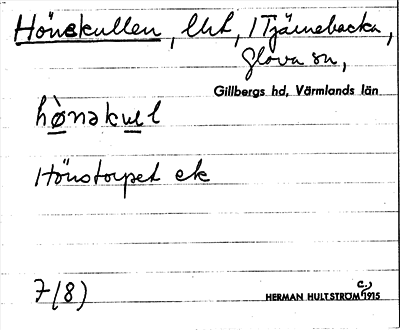 Hönskullen, lht, 1 Tjärnebacka,
Glava sn,
Gillbergs hd, Värmlands län
hø̀nəkul
Hönstorpet ek
7(8)
HERMAN HULTSTRÖM c. 1915